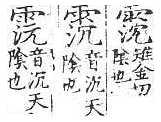 霃雉金切陰也
霃音沉天陰也
霃音沉天陰也